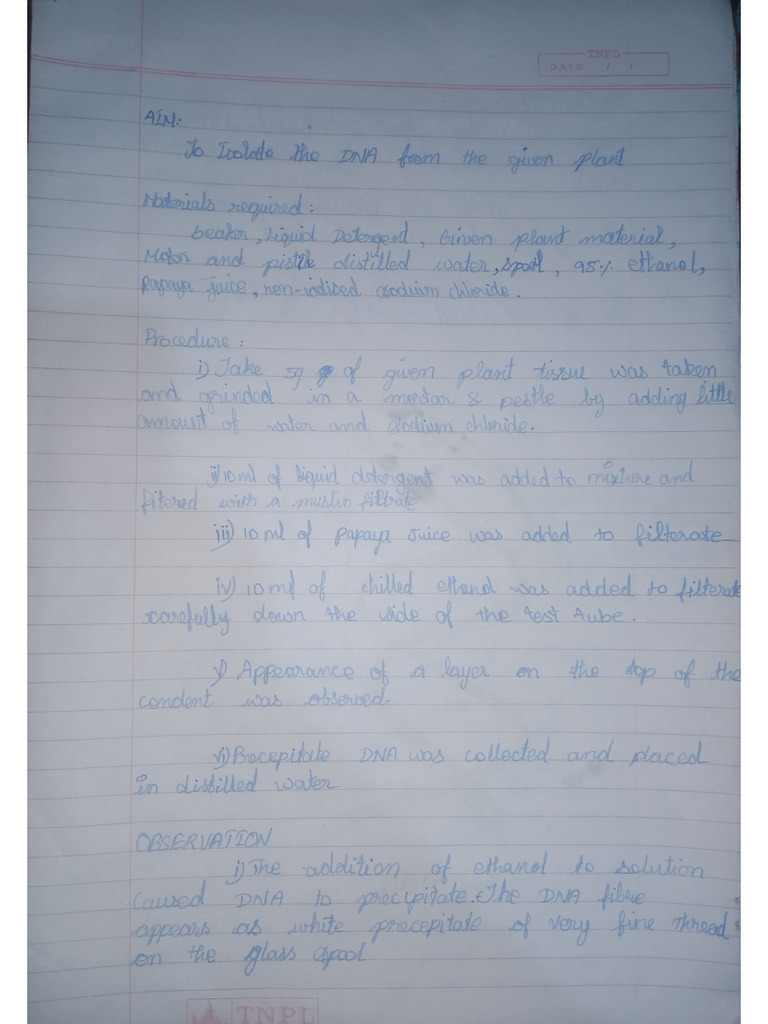 TNPL
DATE / /
AIM:
To Isolate the DNA from the given plant
Materials required:
beaker, Liquid Detergent, Given plant material,
Motor and pistle distilled water, spool, 95% ethanol,
Papaya juice, non-iodised sodium chloride.
Procedure:
i) Take 5g of given plant tissue was taken
and grinded in a mortar & pestle by adding little
amount of water and sodium chloride.
ii) 10ml of liquid detergent was added to mixture and
filtered with a muslin filtrate
iii) 10 ml of papaya Juice was added to filterate
iv) 10 ml of chilled ethanol was added to filterate
carefully down the side of the test tube.
v) Appearance of a layer on the top of the
condent was observed.
vi) Precepitate DNA was collected and placed
in distilled water
OBSERVATION
i) The addition of ethanol to solution
caused DNA to precipitate. The DNA fibre
appears as white precepitate of very fine thread
on the glass spool
TNPL